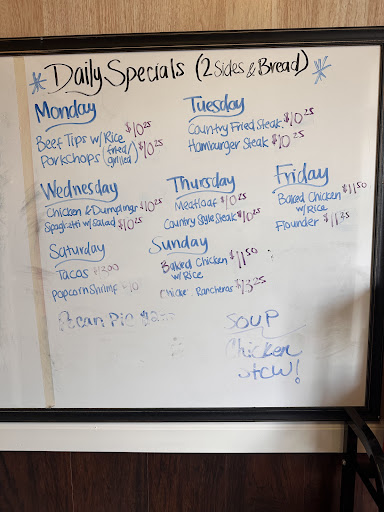 Daily Specials (2 Sides & Bread)
Monday
Beef Tips w/Rice $10.25
Porkchops (fried/grilled) $10.25
Tuesday
Country Fried Steak $10.25
Hamburger Steak $10.25
Wednesday
Chicken & Dumplings $10.25
Spaghetti w/Salad $10.25
Thursday
Meatloaf $10.25
Country Style Steak $10.25
Friday
Baked Chicken $11.50
w/Rice
Flounder
Saturday
Tacos
Popcorn Shrimp
Sunday
Baked Chicken $11.50
w/Rice
Chicken Rancheras $13.25
Pecan Pie
SOUP
Chicken
Stew!